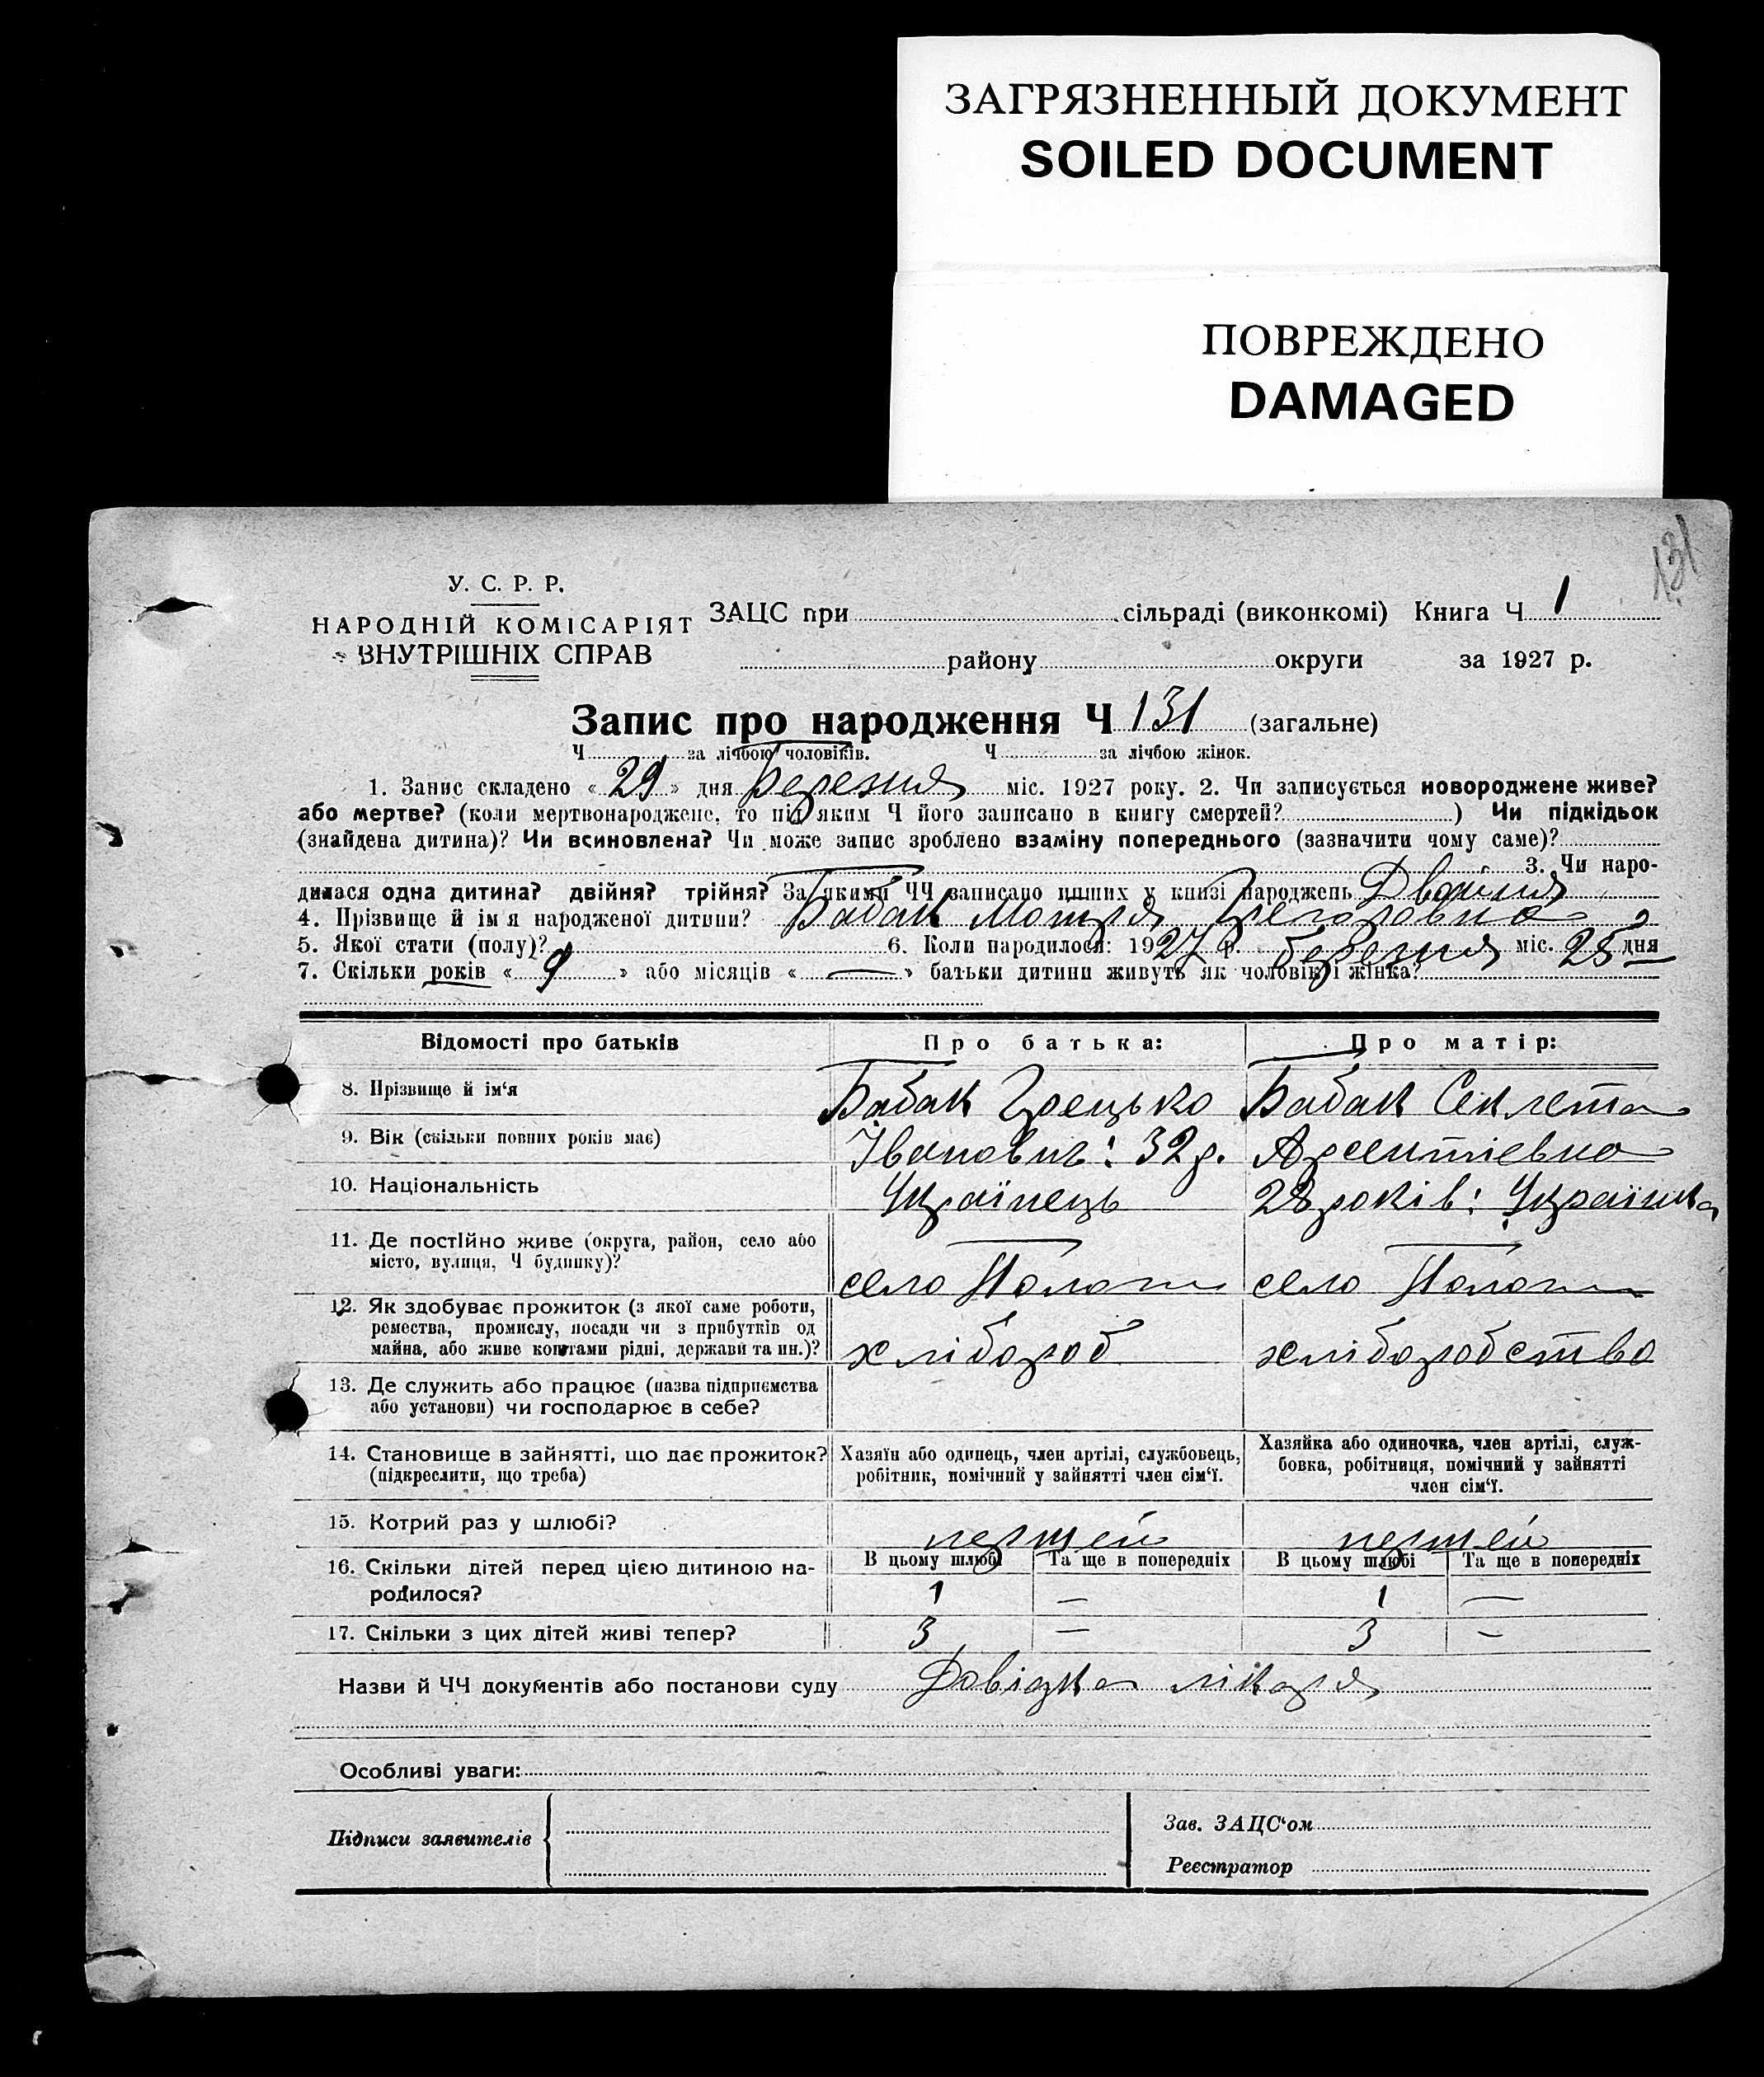 ЗАГРЯЗНЕННЫЙ ДОКУМЕНТ
SOILED DOCUMENT
ПОВРЕЖДЕНО
DAMAGED
131
У. С. Р. Р.
НАРОДНІЙ КОМІСАРІЯТ
ВНУТРІШНІХ СПРАВ
ЗАЦС при сільраді (виконкомі) Книга Ч 1
району округи за 1927 р.
Запис про народження Ч 131 (загальне)
Ч за лічбою чоловіків. Ч за лічбою жінок.
1. Запис складено « 29 » дня Березня міс. 1927 року. 2. Чи записується новороджене живе?
або мертве? (коли мертвонароджене, то під яким Ч його записано в книгу смертей? ) Чи підкідьок
(знайдена дитина)? Чи всиновлена? Чи може запис зроблено взаміну попереднього (зазначити чому саме)?
3. Чи наро-
дилася одна дитина? двійня? трійня? За якими ЧЧ записано инших у книзі народжень Двойня
4. Прізвище й ім'я народженої дитини? Бабак Мотря
5. Якої стати (полу)? 6. Коли народилося: 1927 р. березня міс. 25 дня
7. Скільки років « 9 » або місяців « — » батьки дитини живуть як чоловік і жінка?
Відомості про батьків
Про батька:
Про матір:
8. Прізвище й ім'я
Бабак Грецько
Бабак Секлета
9. Вік (скільки повних років має)
Іванович: 32 р.
Арсентіевна
10. Національність
Українець
28 років: Українка
11. Де постійно живе (округа, район, село або
місто, вулиця, Ч будинку)?
село Пологи
село Пологи
12. Як здобуває прожиток (з якої саме роботи,
ремества, промислу, посади чи з прибутків од
майна, або живе коштами рідні, держави та ин.)?
хлібороб
хліборобство
13. Де служить або працює (назва підприємства
або установи) чи господарює в себе?
14. Становище в зайнятті, що дає прожиток?
(підкреслити, що треба)
Хазяїн або одинець, член артілі, службовець,
робітник, помічний у зайнятті член сім'ї.
Хазяйка або одиночка, член артілі, служ-
бовка, робітниця, помічний у зайнятті
член сім'ї.
15. Котрий раз у шлюбі?
першей
першей
16. Скільки дітей перед цією дитиною на-
родилося?
В цьому шлюбі
Та ще в попередніх
В цьому шлюбі
Та ще в попередніх
1 — 1 —
17. Скільки з цих дітей живі тепер?
3 — 3 —
Назви й ЧЧ документів або постанови суду Довідка лікаря
Особливі уваги:
Підписи заявителів
Зав. ЗАЦС'ом
Реєстратор